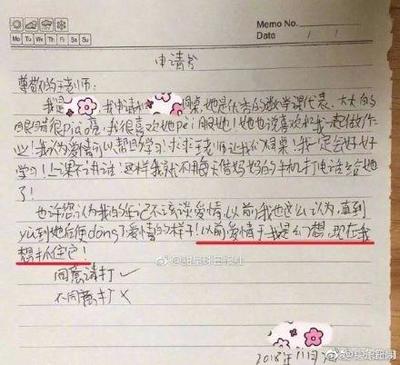 Memo No.
Mo Tu We Th Fr Sa Su Date / /
申请书
尊敬的王老师:
我是 ,我申请和 同桌,她是优秀的数学课代表,大大的
眼睛很piao亮,我很喜欢她pei服她!她也说喜欢和我一起做作
业!我认为爱情可以帮助学习!求求王老师让我们同桌!我一定会好好
学习!上课不讲话!这样我就不用每天借妈妈的手机打电话给她
了!
也许您认为我的年纪不该谈爱情,以前我也这么认为,直到
yu到她后便dong了爱情的样子!以前爱情于我是幻想,现在我
想抓住它!
同意请打✓
不同意打×
2018年11月